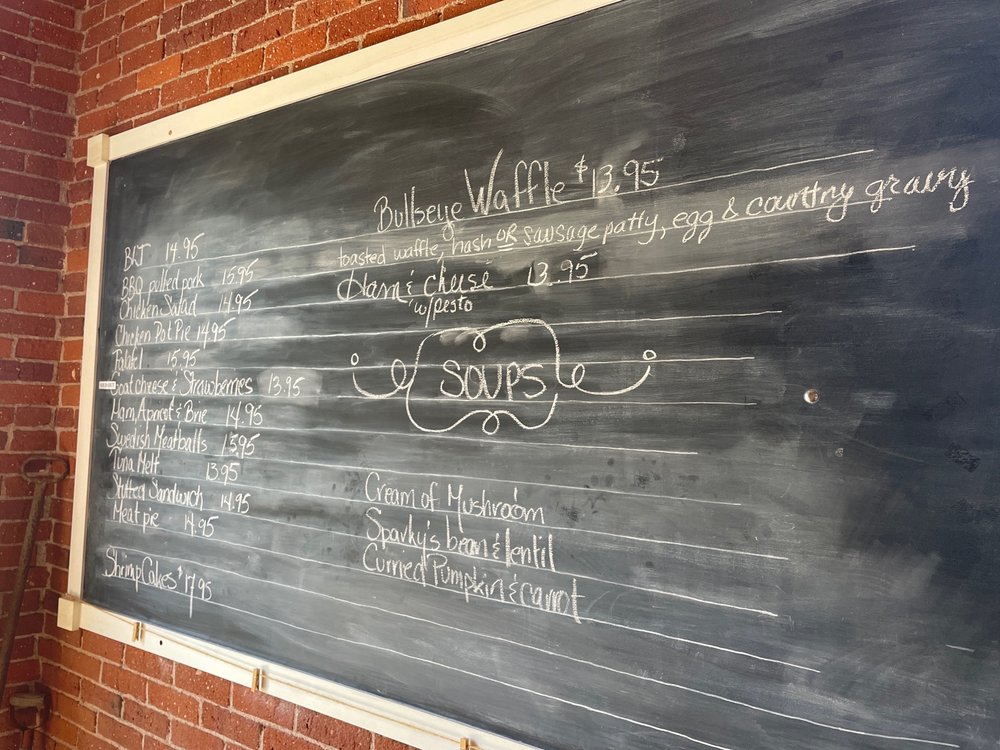 Bullseye Waffle $13.95
toasted waffle, hash OR sausage patty, egg & country gravy
Ham & cheese 13.95
w/pesto
BLT 14.95
BBQ pulled pork 15.95
Chicken Salad 14.95
Chicken Pot Pie 14.95
15.95
Goat cheese & Strawberries 13.95
Ham, Apricot & Brie 14.95
Swedish Meatballs 13.95
Tuna Melt 13.95
Stuffed Sandwich 14.95
Meat pie 14.95
Shrimp Cakes $17.95
SOUPS
Cream of Mushroom
Sparky's bean & lentil
Curried Pumpkin & carrot